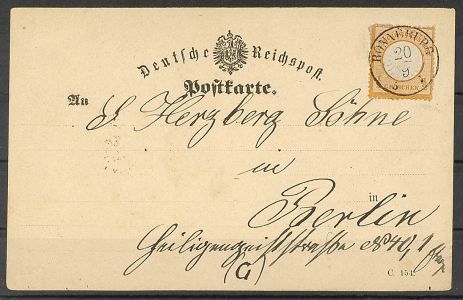 Deutsche Reichspost.
Postkarte.
RONNEBURG
20
9
GROSCHEN
An
S Herzberg Söhne
in
in
Berlin
Heiligengeiststraße No 40, 1
(C)
C. 154.